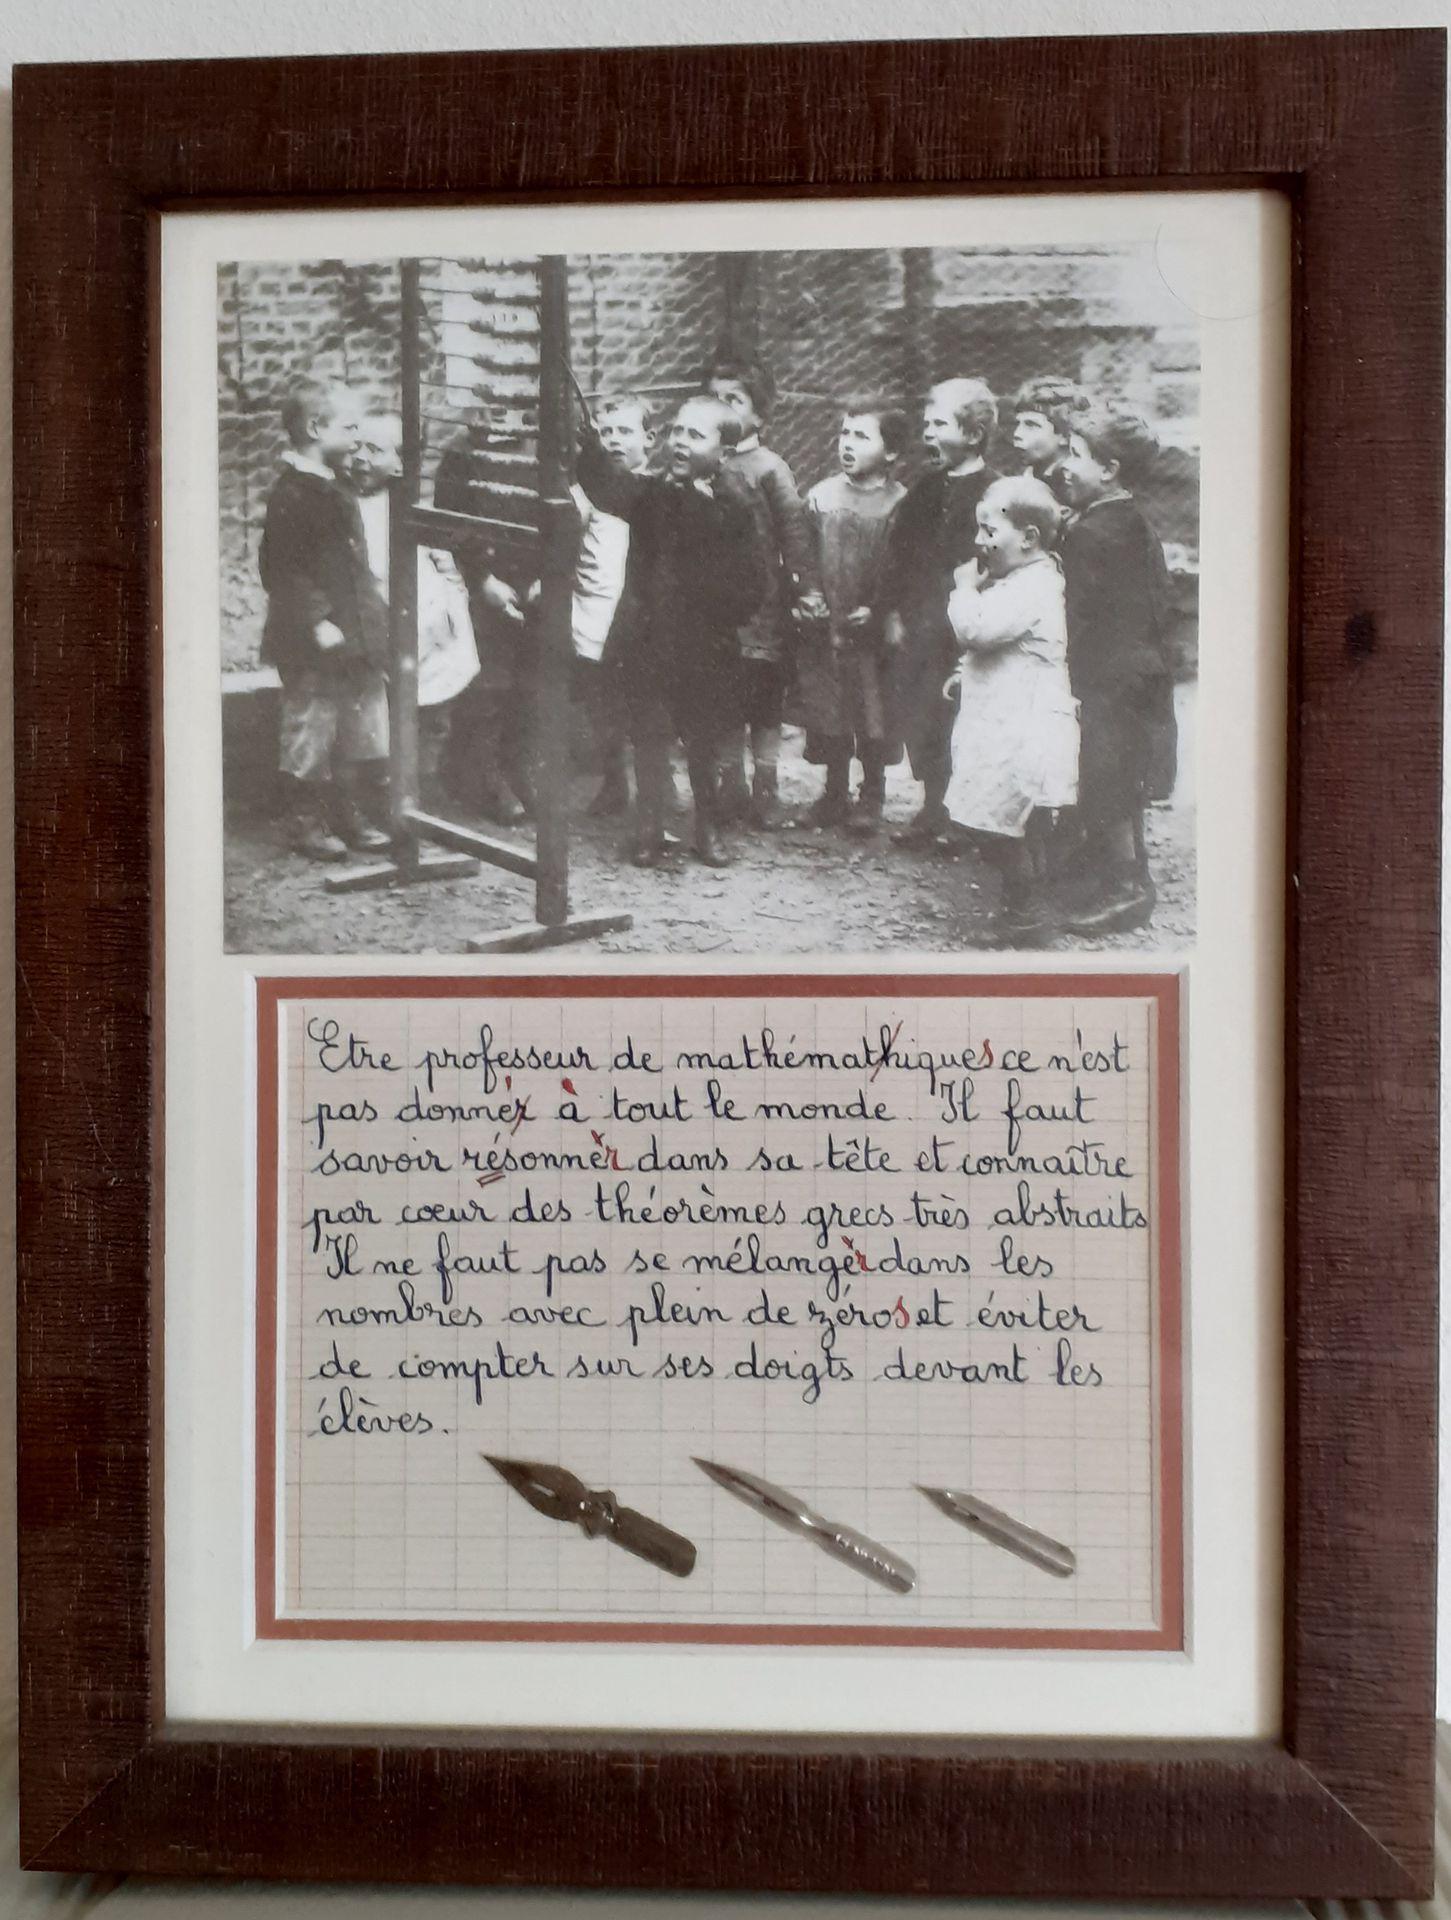 Etre professeur de mathémathiques ce n'est
pas donnér à tout le monde. Il faut
savoir résonner dans sa tête et connaître
par cœur des théorèmes grecs très abstraits
Il ne faut pas se mélanger dans les
nombres avec plein de zéros et éviter
de compter sur ses doigts devant les
élèves.